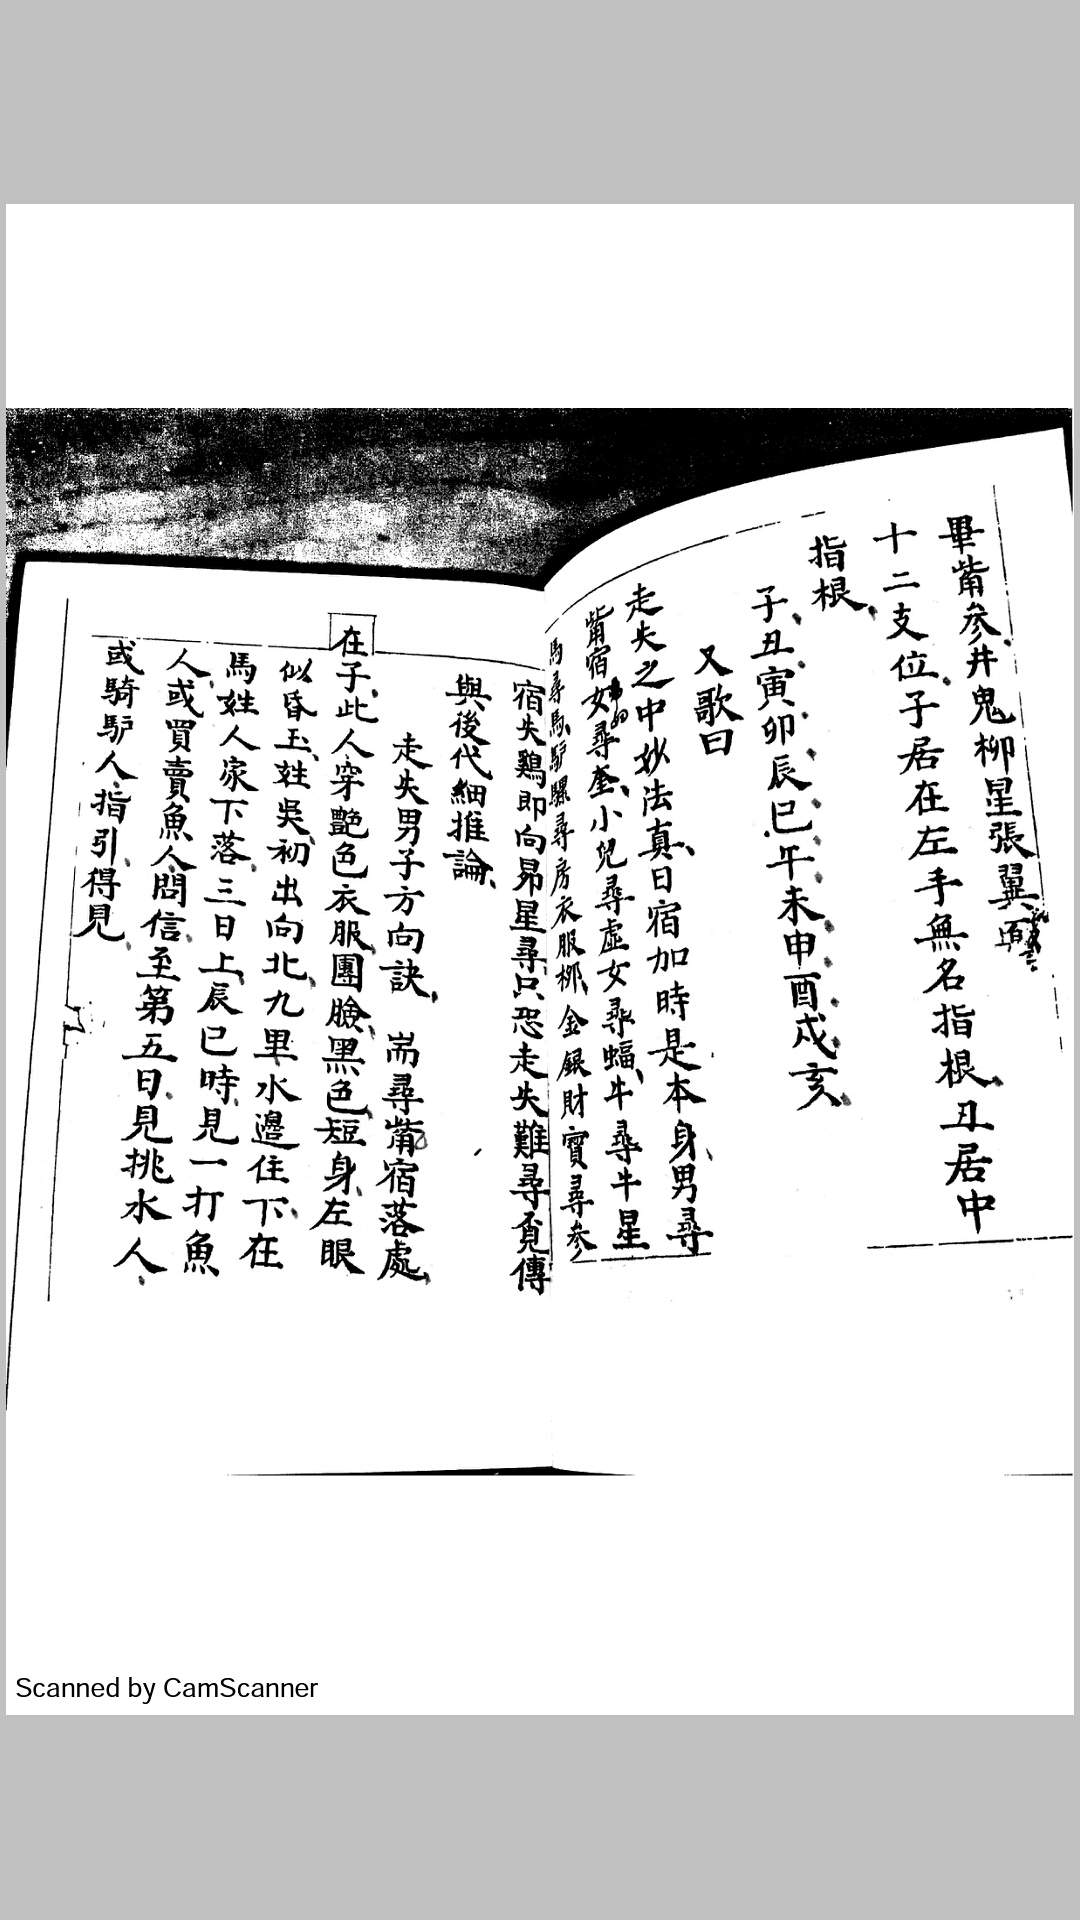 畢觜參井鬼柳星張翼
十二支位子居在左手無名指根丑居中
指根
子丑寅卯辰巳午未申酉戌亥
又歌曰
走失之中妙法真日宿加時是本身男尋
觜宿女尋奎小兒尋虛女尋蝠牛尋牛星
馬尋馬驢騾尋房衣服柳金銀財寶尋參
宿失鷄即向昴星尋只恐走失難尋覓傳
與後代細推論
走失男子方向訣 耑尋觜宿落處
在子此人穿艷色衣服團臉黑色短身左眼
似昏玉姓吳初出向北九里水邊住下在
馬姓人家下落三日上辰巳時見一打魚
人或買賣魚人問信至第五日見挑水人
或騎驴人指引得見
Scanned by CamScanner